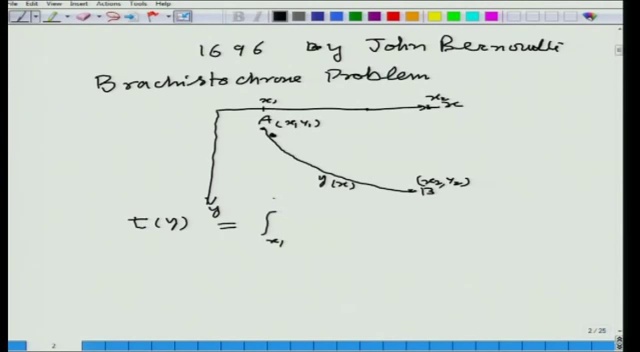 Edit View Insert Actions Tools Help
1696 By John Bernoulli
Brachistochrone Problem
x₁ x₂ x
A (x₁, y₁)
y(x) (x₂, y₂)
B
y
t(y) = ∫
x₁
2 / 25
2